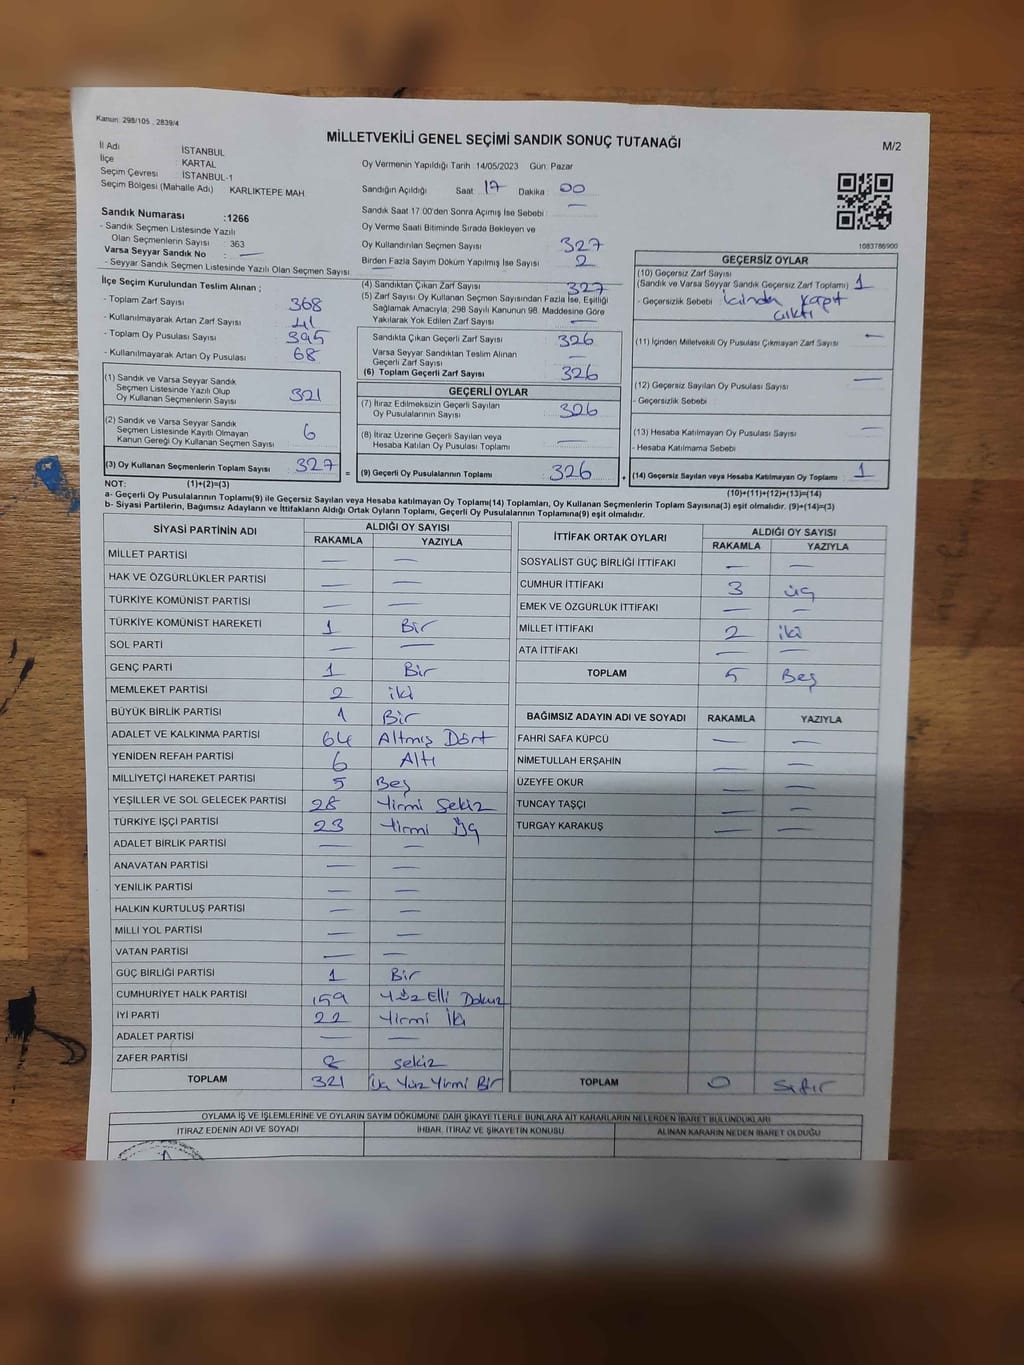 Kanun: 298/105 , 2839/4
MİLLETVEKİLİ GENEL SEÇİMİ SANDIK SONUÇ TUTANAĞI
M/2
İl Adı : İSTANBUL
İlçe : KARTAL
Seçim Çevresi : İSTANBUL-1
Seçim Bölgesi (Mahalle Adı) KARLIKTEPE MAH
Sandık Numarası :1266
- Sandık Seçmen Listesinde Yazılı
Olan Seçmenlerin Sayısı : 363
Varsa Seyyar Sandık No : —
- Seyyar Sandık Seçmen Listesinde Yazılı Olan Seçmen Sayısı : —
Oy Vermenin Yapıldığı Tarih : 14/05/2023 Gün: Pazar
Sandığın Açıldığı Saat : 17 Dakika : 00
Sandık Saat 17:00'den Sonra Açımış İse Sebebi : —
Oy Verme Saati Bitiminde Sırada Bekleyen ve
Oy Kullandırılan Seçmen Sayısı : 327
Birden Fazla Sayım Döküm Yapılmış İse Sayısı : 2
1083786900
İlçe Seçim Kurulundan Teslim Alınan ;
- Toplam Zarf Sayısı : 368
- Kullanılmayarak Artan Zarf Sayısı : 41
- Toplam Oy Pusulası Sayısı : 395
- Kullanılmayarak Artan Oy Pusulası : 68
(1) Sandık ve Varsa Seyyar Sandık
Seçmen Listesinde Yazılı Olup
Oy Kullanan Seçmenlerin Sayısı : 321
(2) Sandık ve Varsa Seyyar Sandık
Seçmen Listesinde Kayıtlı Olmayan
Kanun Gereği Oy Kullanan Seçmen Sayısı : 6
(3) Oy Kullanan Seçmenlerin Toplam Sayısı : 327 =
(4) Sandıktan Çıkan Zarf Sayısı : 327
(5) Zarf Sayısı Oy Kullanan Seçmen Sayısından Fazla İse, Eşitliği
Sağlamak Amacıyla, 298 Sayılı Kanunun 98. Maddesine Göre
Yakılarak Yok Edilen Zarf Sayısı : —
Sandıkta Çıkan Geçerli Zarf Sayısı : 326
Varsa Seyyar Sandıktan Teslim Alınan
Geçerli Zarf Sayısı : —
(6) Toplam Geçerli Zarf Sayısı : 326
GEÇERLİ OYLAR
(7) İtiraz Edilmeksizin Geçerli Sayılan
Oy Pusulalarının Sayısı : 326
(8) İtiraz Üzerine Geçerli Sayılan veya
Hesaba Katılan Oy Pusulası Toplamı : —
(9) Geçerli Oy Pusulalarının Toplamı : 326 +
GEÇERSİZ OYLAR
(10) Geçersiz Zarf Sayısı
(Sandık ve Varsa Seyyar Sandık Geçersiz Zarf Toplamı) : 1
- Geçersizlik Sebebi : içinden kağıt
çıktı
(11) İçinden Milletvekili Oy Pusulası Çıkmayan Zarf Sayısı : —
(12) Geçersiz Sayılan Oy Pusulası Sayısı : —
- Geçersizlik Sebebi :
(13) Hesaba Katılmayan Oy Pusulası Sayısı : —
- Hesaba Katılmama Sebebi :
(14) Geçersiz Sayılan veya Hesaba Katılmayan Oy Toplamı : 1
NOT: (1)+(2)=(3)
(10)+(11)+(12)+(13)=(14)
a- Geçerli Oy Pusulalarının Toplamı(9) ile Geçersiz Sayılan veya Hesaba katılmayan Oy Toplamı(14) Toplamları, Oy Kullanan Seçmenlerin Toplam Sayısına(3) eşit olmalıdır. (9)+(14)=(3)
b- Siyasi Partilerin, Bağımsız Adayların ve İttifakların Aldığı Ortak Oyların Toplamı, Geçerli Oy Pusulalarının Toplamına(9) eşit olmalıdır.
SİYASİ PARTİNİN ADI ALDIĞI OY SAYISI
RAKAMLA YAZIYLA
MİLLET PARTİSİ — —
HAK VE ÖZGÜRLÜKLER PARTİSİ — —
TÜRKİYE KOMÜNİST PARTİSİ — —
TÜRKİYE KOMÜNİST HAREKETİ 1 Bir
SOL PARTİ — —
GENÇ PARTİ 1 Bir
MEMLEKET PARTİSİ 2 iki
BÜYÜK BİRLİK PARTİSİ 1 Bir
ADALET VE KALKINMA PARTİSİ 64 Altmış Dört
YENİDEN REFAH PARTİSİ 6 Altı
MİLLİYETÇİ HAREKET PARTİSİ 5 Beş
YEŞİLLER VE SOL GELECEK PARTİSİ 28 Yirmi Sekiz
TÜRKİYE İŞÇİ PARTİSİ 23 Yirmi Üç
ADALET BİRLİK PARTİSİ — —
ANAVATAN PARTİSİ — —
YENİLİK PARTİSİ — —
HALKIN KURTULUŞ PARTİSİ — —
MİLLİ YOL PARTİSİ — —
VATAN PARTİSİ — —
GÜÇ BİRLİĞİ PARTİSİ 1 Bir
CUMHURİYET HALK PARTİSİ 159 Yüz Elli Dokuz
İYİ PARTİ 22 Yirmi İki
ADALET PARTİSİ — —
ZAFER PARTİSİ 8 sekiz
TOPLAM 321 Üç Yüz Yirmi Bir
İTTİFAK ORTAK OYLARI ALDIĞI OY SAYISI
RAKAMLA YAZIYLA
SOSYALİST GÜÇ BİRLİĞİ İTTİFAKI — —
CUMHUR İTTİFAKI 3 üç
EMEK VE ÖZGÜRLÜK İTTİFAKI — —
MİLLET İTTİFAKI 2 iki
ATA İTTİFAKI — —
TOPLAM 5 Beş
BAĞIMSIZ ADAYIN ADI VE SOYADI RAKAMLA YAZIYLA
FAHRİ SAFA KÜPCÜ — —
NİMETULLAH ERŞAHİN — —
ÜZEYFE OKUR — —
TUNCAY TAŞÇI — —
TURGAY KARAKUŞ — —
TOPLAM 0 Sıfır
OYLAMA İŞ VE İŞLEMLERİNE VE OYLARIN SAYIM DÖKÜMÜNE DAİR ŞİKAYETLERLE BUNLARA AİT KARARLARIN NELERDEN İBARET BULUNDUKLARI
İTİRAZ EDENİN ADI VE SOYADI İHBAR, İTİRAZ VE ŞİKAYETİN KONUSU ALINAN KARARIN NEDEN İBARET OLDUĞU